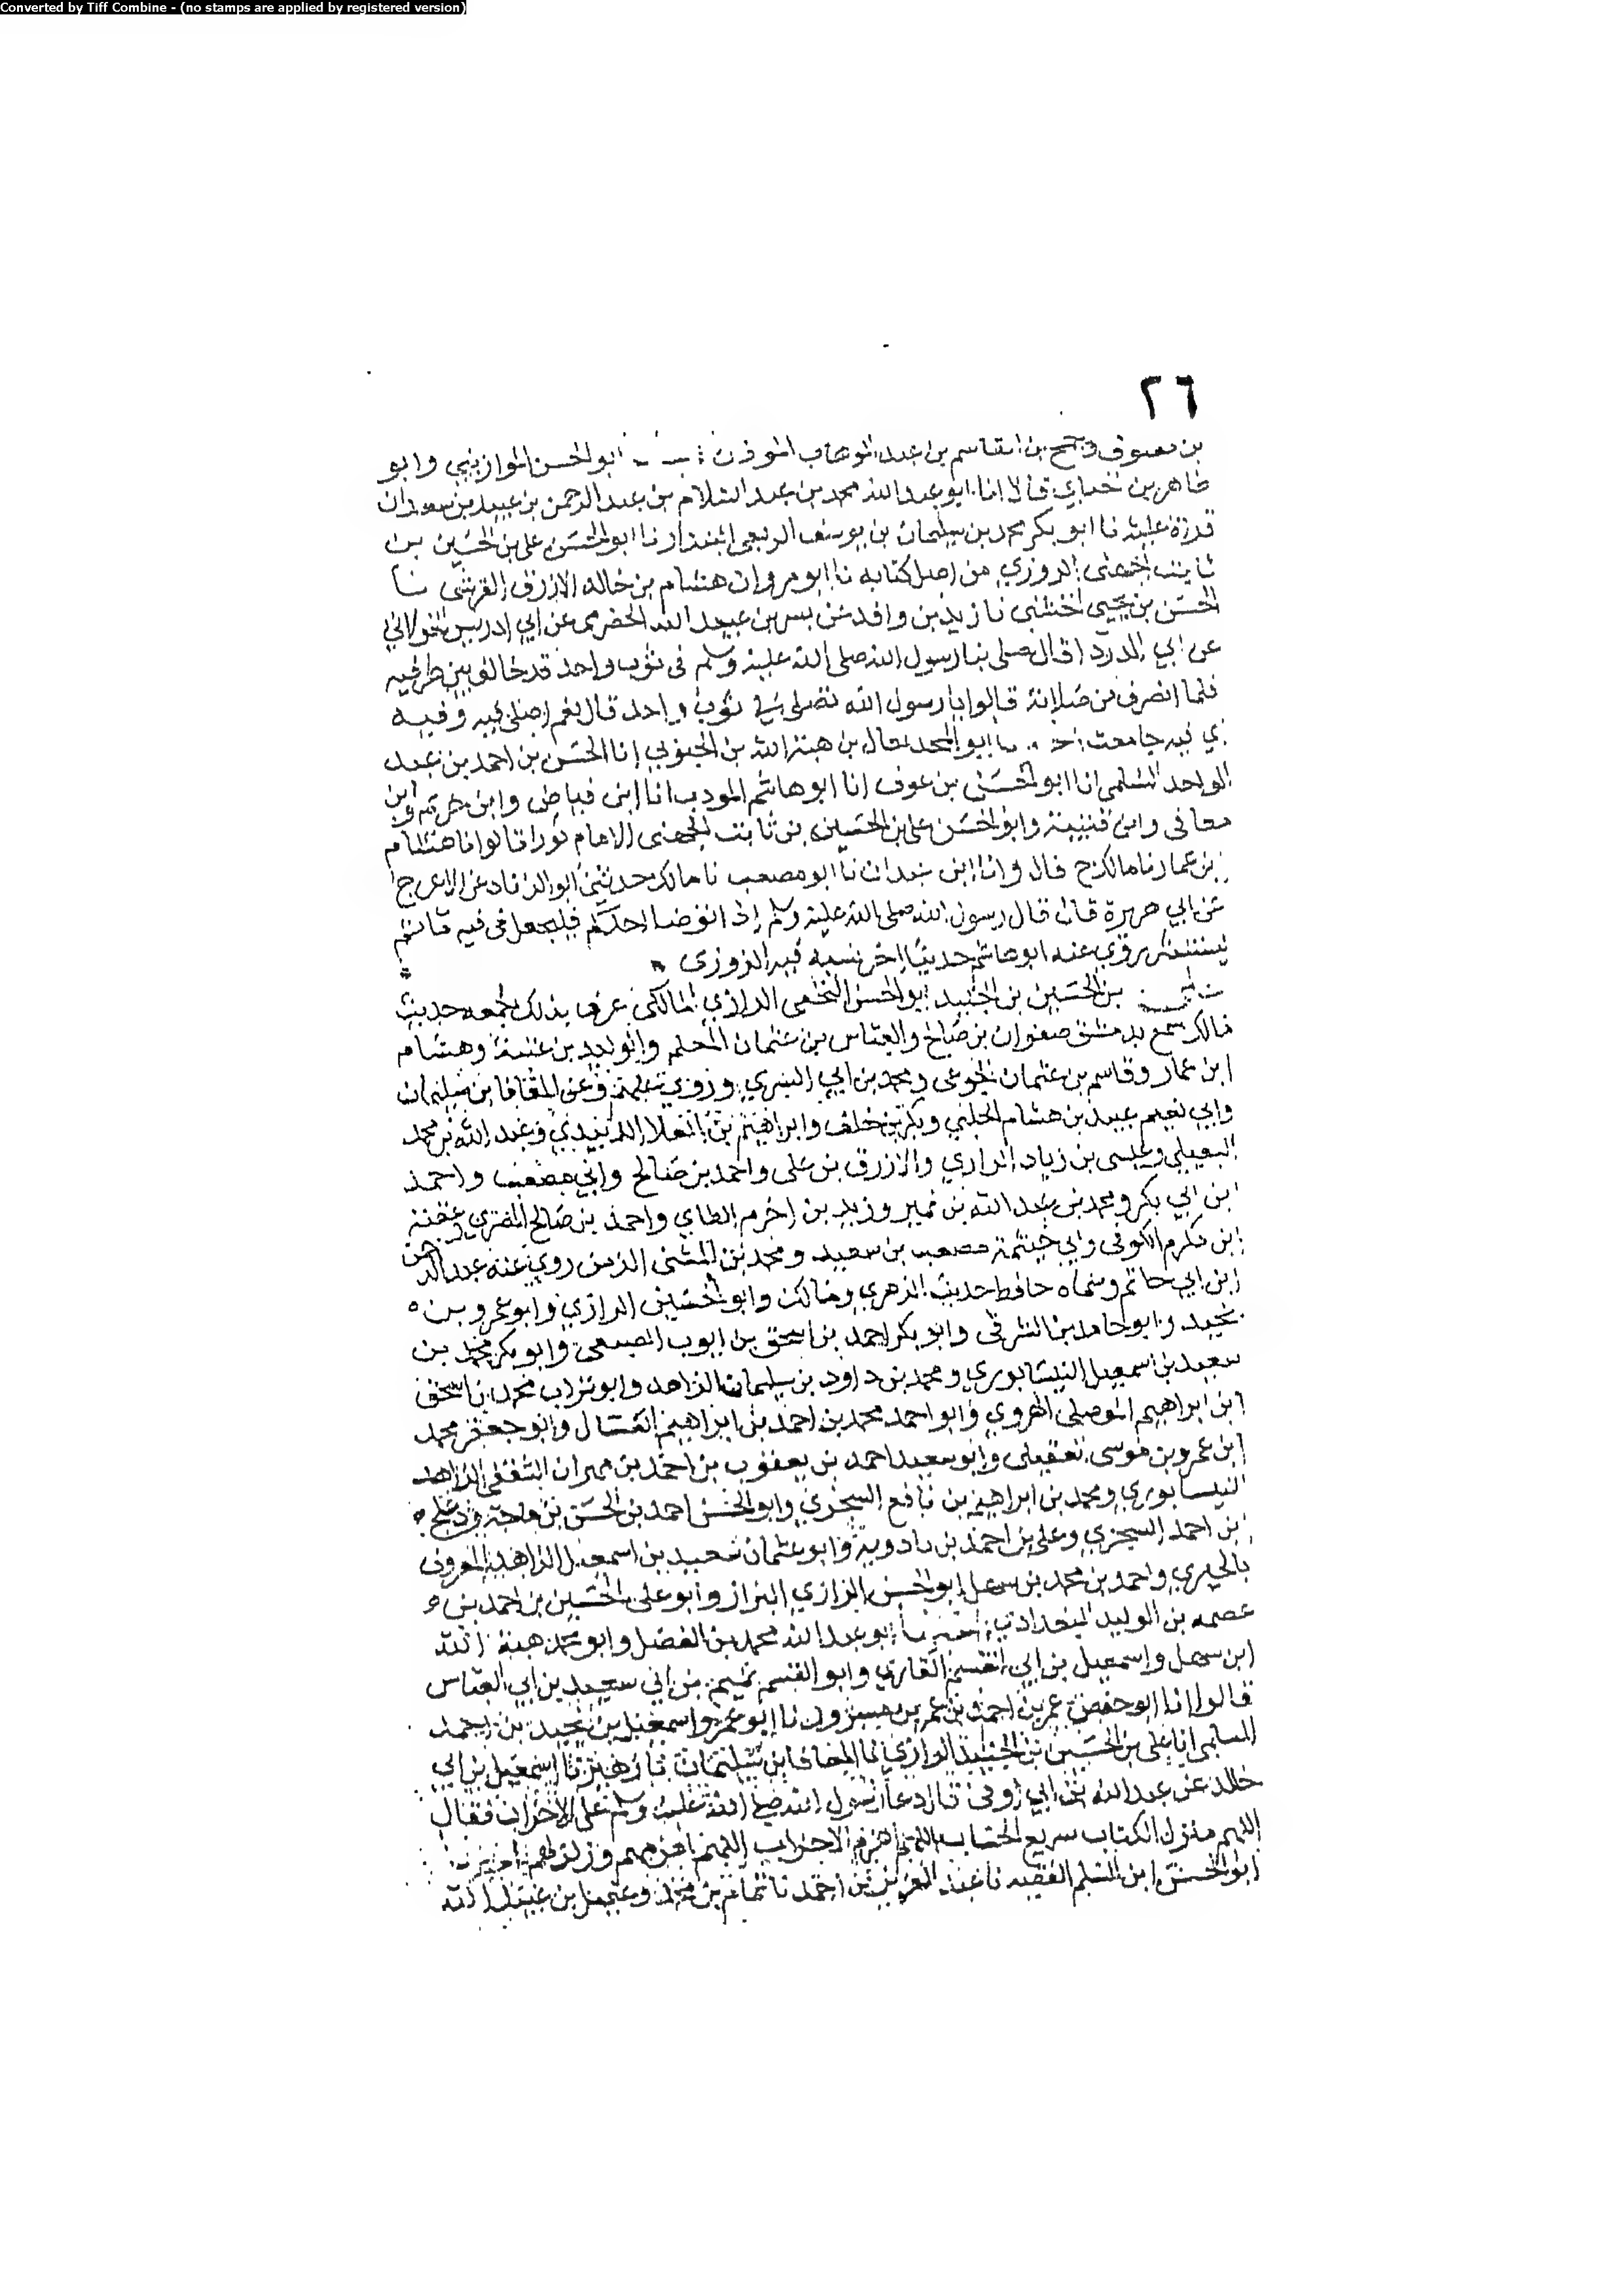 Converted by Tiff Combine - (no stamps are applied by registered version)
٢٦
بن معيوف وجمح بن القاسم بن عبد الوهاب الموذن ابو الحسن الموازيني وابو
طاهر بن قالا انا ابو عبد الله محمد بن عبد السلام بن عبد الرحمن بن عبيد بن سعدان
قراة عليه نا ابو بكر محمد بن سليمان بن يوسف الربعي البندار نا ابو الحسن علي بن الحسين بن
ثابت الجهني الزوزي من اصل كتابه نا ابو مروان هشام بن خالد الازرق القرشي نا
الحسن بن يحيى الخشني نا زيد بن واقد عن بسر بن عبيد الله الحضرمي عن ابي ادريس الخولاني
عن ابي الدردا قال صلى بنا رسول الله صلى الله عليه وسلم في ثوب واحد قد خالف بين طرفيه
فلما انصرف من صلاته قالوا يا رسول الله تصلي في ثوب واحد قال نعم اصلي فيه وفيه
اي فيه جامعت ابو المجد معالي بن هبة الله بن الحبوبي انا الحسن بن احمد بن عبد
الواحد السلمي انا ابو الحسن بن عوف انا ابو هاشم المودب انا ابن فياض وابن خريم وابن
معافى وابن قتيبة وابو الحسن علي بن الحسين بن ثابت الجهني الامام قالوا نا هشام
بن عمار نا مالك ح قال وانا ابن نا ابو مصعب نا مالك حدثني ابو الزناد عن الاعرج
عن ابي هريرة قال قال رسول الله صلى الله عليه وسلم اذا توضا احدكم فليجعل في فيه ما ثم
يستنثر روى عنه ابو هاشم حديثا اخر نسبه فيه الزوزي
بن الحسين بن الجنيد ابو الحسن النخعي الرازي المالكي عرف بذلك لجمعه حديث
مالك سمع بدمشق صفوان بن صالح والعباس بن عثمان المعلم والوليد بن عتبة وهشام
ابن عمار وقاسم بن عثمان الجوعي ومحمد بن ابي السري وروى عنهم وعن المعافا بن سليمان
وابي نعيم عبيد بن هشام الحلبي وبكر بن خلف وابراهيم بن العلا الزبيدي وعبد الله بن محمد
النفيلي وعيسى بن زياد الرازي والازرق بن علي واحمد بن صالح وابي مصعب واحمد
ابن ابي بكر ومحمد بن عبد الله بن نمير وزيد بن اخزم الطاي واحمد بن صالح المصري وعقبة
ابن مكرم الكوفي وابي خيثمة مصعب بن سعيد ومحمد بن المثنى الزمن روى عنه عبد الرحمن
ابن ابي حاتم وسماه حافظ حديث الزهري ومالك وابو الحسين الرازي وابو عمرو بن
نجيد وابو حامد بن الشرقي وابو بكر احمد بن اسحق بن ايوب الصبغي وابو بكر محمد بن
سعيد بن اسمعيل النيسابوري ومحمد بن داود بن سليمان الزاهد وابو تراب محمد بن اسحق
ابن ابراهيم الموصلي الهروي وابو احمد محمد بن احمد بن ابراهيم العسال وابو جعفر محمد
ابن عمرو بن موسى العقيلي وابو سعيد احمد بن يعقوب بن احمد بن مهران الثقفي الزاهد
النيسابوري ومحمد بن ابراهيم بن نافع السجزي وابو الحسن احمد بن الحسن بن ماجة ودعلج
بن احمد السجزي وعلي بن احمد بن بادوية وابو عثمان سعيد بن اسمعيل الزاهد المعروف
بالحيري واحمد بن محمد بن سهل ابو الحسن الرازي البزاز وابو علي الحسين بن احمد بن
عصمه بن الوليد البغدادي اخبرنا ابو عبد الله محمد بن الفضل وابو محمد هبة الله
ابن سهل واسمعيل بن ابي القسم القاري وابو القسم تميم بن ابي سعيد بن ابي العباس
قالوا انا ابو حفص عمر بن احمد بن عمر بن مسرور نا ابو عمرو اسمعيل بن نجيد بن احمد
السلمي انا علي بن الحسين بن الجنيد الرازي نا المعافا بن سليمان نا زهير نا اسمعيل بن ابي
خالد عن عبد الله بن ابي اوفى قال دعا رسول الله صلى الله عليه وسلم على الاحزاب فقال
اللهم منزل الكتاب سريع الحساب اللهم اهزم الاحزاب اللهم اهزمهم وزلزلهم اخبرنا
ابو الحسن ابن المسلم الفقيه نا عبد العزيز بن احمد نا تمام بن محمد وعقيل بن عبيد الله